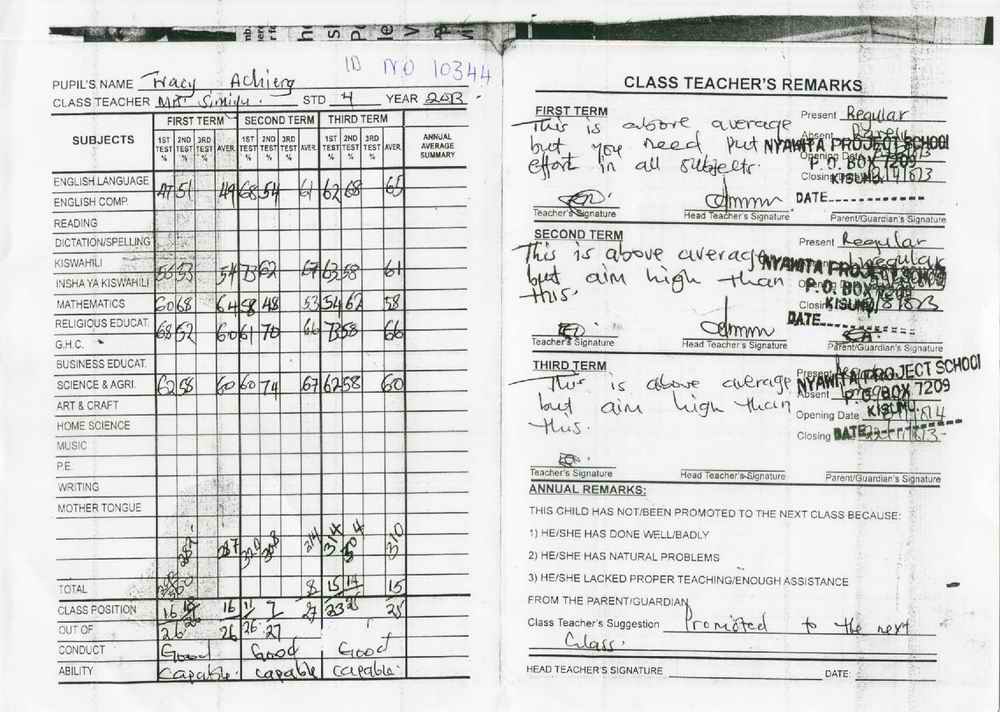 ID NO 10344
PUPIL'S NAME Tracy Achieng
CLASS TEACHER Mr. Simiyu. STD 4 YEAR 2013
SUBJECTS FIRST TERM SECOND TERM THIRD TERM ANNUAL AVERAGE SUMMARY
1ST TEST % 2ND TEST % 3RD TEST % AVER. 1ST TEST % 2ND TEST % 3RD TEST % AVER. 1ST TEST % 2ND TEST % 3RD TEST % AVER.
ENGLISH LANGUAGE
ENGLISH COMP. 47 51 49 68 54 61 62 68 65
READING
DICTATION/SPELLING
KISWAHILI
INSHA YA KISWAHILI 55 53 54 73 62 67 63 58 61
MATHEMATICS 60 68 64 58 48 53 54 62 58
RELIGIOUS EDUCAT. 68 52 60 61 70 66 58 66
G.H.C.
BUSINESS EDUCAT.
SCIENCE & AGRI. 62 58 60 60 74 67 62 58 60
ART & CRAFT
HOME SCIENCE
MUSIC
P.E.
WRITING
MOTHER TONGUE
287 314 310
TOTAL 8 15 14 15
CLASS POSITION 16 16 11 7 27 23 25 25
OUT OF 26 26 26 27
CONDUCT Good Good Good
ABILITY Capable. capable capable.
CLASS TEACHER'S REMARKS
FIRST TERM Present Regular
This is above average Absent Rarely
but you need put NYAWITA PROJECT SCHOOL
effort in all subjects. Opening Date P. O. BOX 7209
Closing KISUMU
DATE
Teacher's Signature Head Teacher's Signature Parent/Guardian's Signature
SECOND TERM Present Regular
This is above average NYAWITA PROJECT SCHOOL
but aim high than P. O. BOX 7209
this. Closing KISUMU
DATE
Teacher's Signature Head Teacher's Signature Parent/Guardian's Signature
THIRD TERM Present
This is above average NYAWITA PROJECT SCHOOL
but aim high than Absent P. O. BOX 7209
this. Opening Date KISUMU
Closing DATE
Teacher's Signature Head Teacher's Signature Parent/Guardian's Signature
ANNUAL REMARKS:
THIS CHILD HAS NOT/BEEN PROMOTED TO THE NEXT CLASS BECAUSE:
1) HE/SHE HAS DONE WELL/BADLY
2) HE/SHE HAS NATURAL PROBLEMS
3) HE/SHE LACKED PROPER TEACHING/ENOUGH ASSISTANCE
FROM THE PARENT/GUARDIAN
Class Teacher's Suggestion Promoted to the next
Class.
HEAD TEACHER'S SIGNATURE DATE: